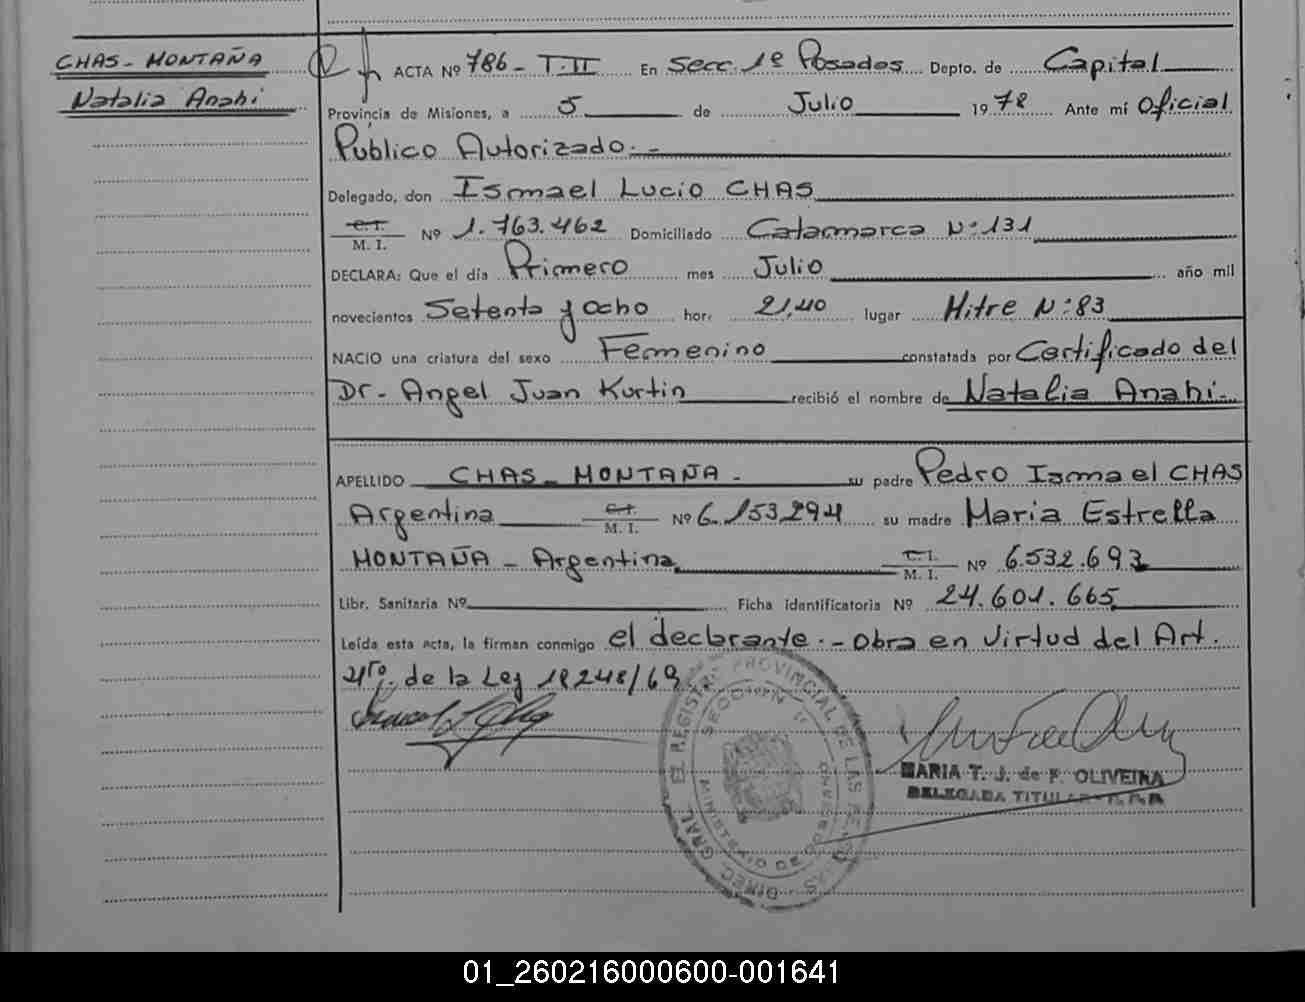 CHAS- MONTAÑA
Natalia Anahi
ACTA Nº 786- T.II En Secc. 1º Posadas Depto. de Capital
Provincia de Misiones, a 5 de Julio 1978 Ante mí Oficial
Público Autorizado.-
Delegado, don Ismael Lucio CHAS
C.I.
M. I. Nº 1.763.462 Domiciliado Catamarca Nº 131
DECLARA: Que el día Primero mes Julio año mil
novecientos Setenta y Ocho hora 21,40 lugar Mitre Nº 83
NACIO una criatura del sexo Femenino constatada por Certificado del
Dr- Angel Juan Kurtin recibió el nombre de Natalia Anahi.-
APELLIDO CHAS- MONTAÑA - su padre Pedro Ismael CHAS
Argentina C.I.
M. I. Nº 6.153.294 su madre Maria Estrella
MONTAÑA - Argentina C.I.
M. I. Nº 6.532.693
Libr. Sanitaria Nº Ficha identificatoria Nº 24.601.665
Leída esta acta, la firman conmigo el declarante.- Obra en virtud del Art.
4to. de la Ley 18248/69
DIREC. GRAL. EL REGISTRO PROVINCIAL DE LAS PERSONAS
SECCION
MARIA T. J. de F. OLIVEIRA
DELEGADA TITULAR
01_260216000600-001641